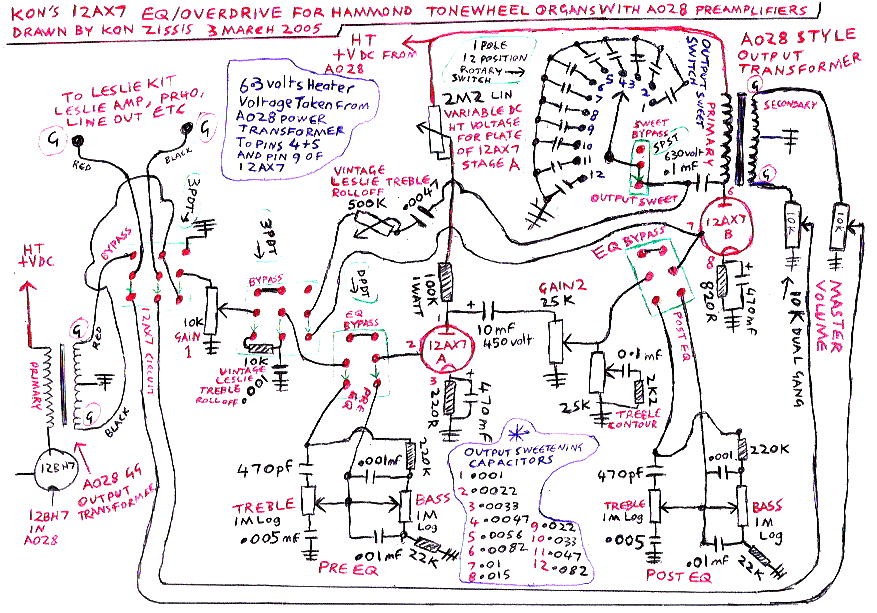 KON'S 12AX7 EQ/OVERDRIVE FOR HAMMOND TONEWHEEL ORGANS WITH AO28 PREAMPLIFIERS
DRAWN BY KON ZISSIS 3 MARCH 2005
HT
+VDC FROM
AO28
1 POLE
12 POSITION
ROTARY
SWITCH
OUTPUT SWEET
SWITCH
AO28 STYLE
OUTPUT
TRANSFORMER
TO LESLIE KIT
LESLIE AMP, PR40,
LINE OUT ETC
G
G
RED
BLACK
63 volts Heater
Voltage Taken From
AO28 POWER
TRANSFORMER
To PINS 4+5
AND PIN 9 OF
12AX7
2M2 LIN
VARIABLE DC
HT VOLTAGE
FOR PLATE
OF 12AX7
STAGE A
1
2
3
4
5
6
7
8
9
10
11
12
SWEET
BYPASS
SPST
OUTPUT SWEET
630 volt
.1mF
PRIMARY
SECONDARY
G
G
6
7
12AX7
B
8
820R
470mF
10K
10K
10K DUAL GANG
MASTER
VOLUME
VINTAGE
LESLIE TREBLE
ROLLOFF
500K
.004
3PDT
BYPASS
12AX7 CIRCUIT
HT
+VDC
10K
GAIN
1
3PDT
BYPASS
DPDT
EQ
BYPASS
PRE
EQ
10K
VINTAGE
LESLIE
TREBLE
ROLLOFF
.001
100K
1WATT
+
10mF
450 volt
2
12AX7
A
3
220R
+
470mF
GAIN2
25K
EQ BYPASS
POST EQ
25K
0.1mF
2K2
TREBLE
CONTOUR
PRIMARY
G
G
RED
BLACK
12BH7
12BH7
IN
AO28
AO28 GG
OUTPUT
TRANSFORMER
470pf
.001mF
220K
TREBLE
1M Log
.005mF
BASS
1M
Log
.01mF
22K
PRE EQ
OUTPUT SWEETENING
CAPACITORS
1 .001
2 .0022
3 .0033
4 .0047
5 .0056
6 .0082
7 .01
8 .015
9 .022
10 .033
11 .047
12 .082
470pf
.001
220K
TREBLE
1M Log
.005
BASS
1M
Log
.01mF
22K
POST EQ